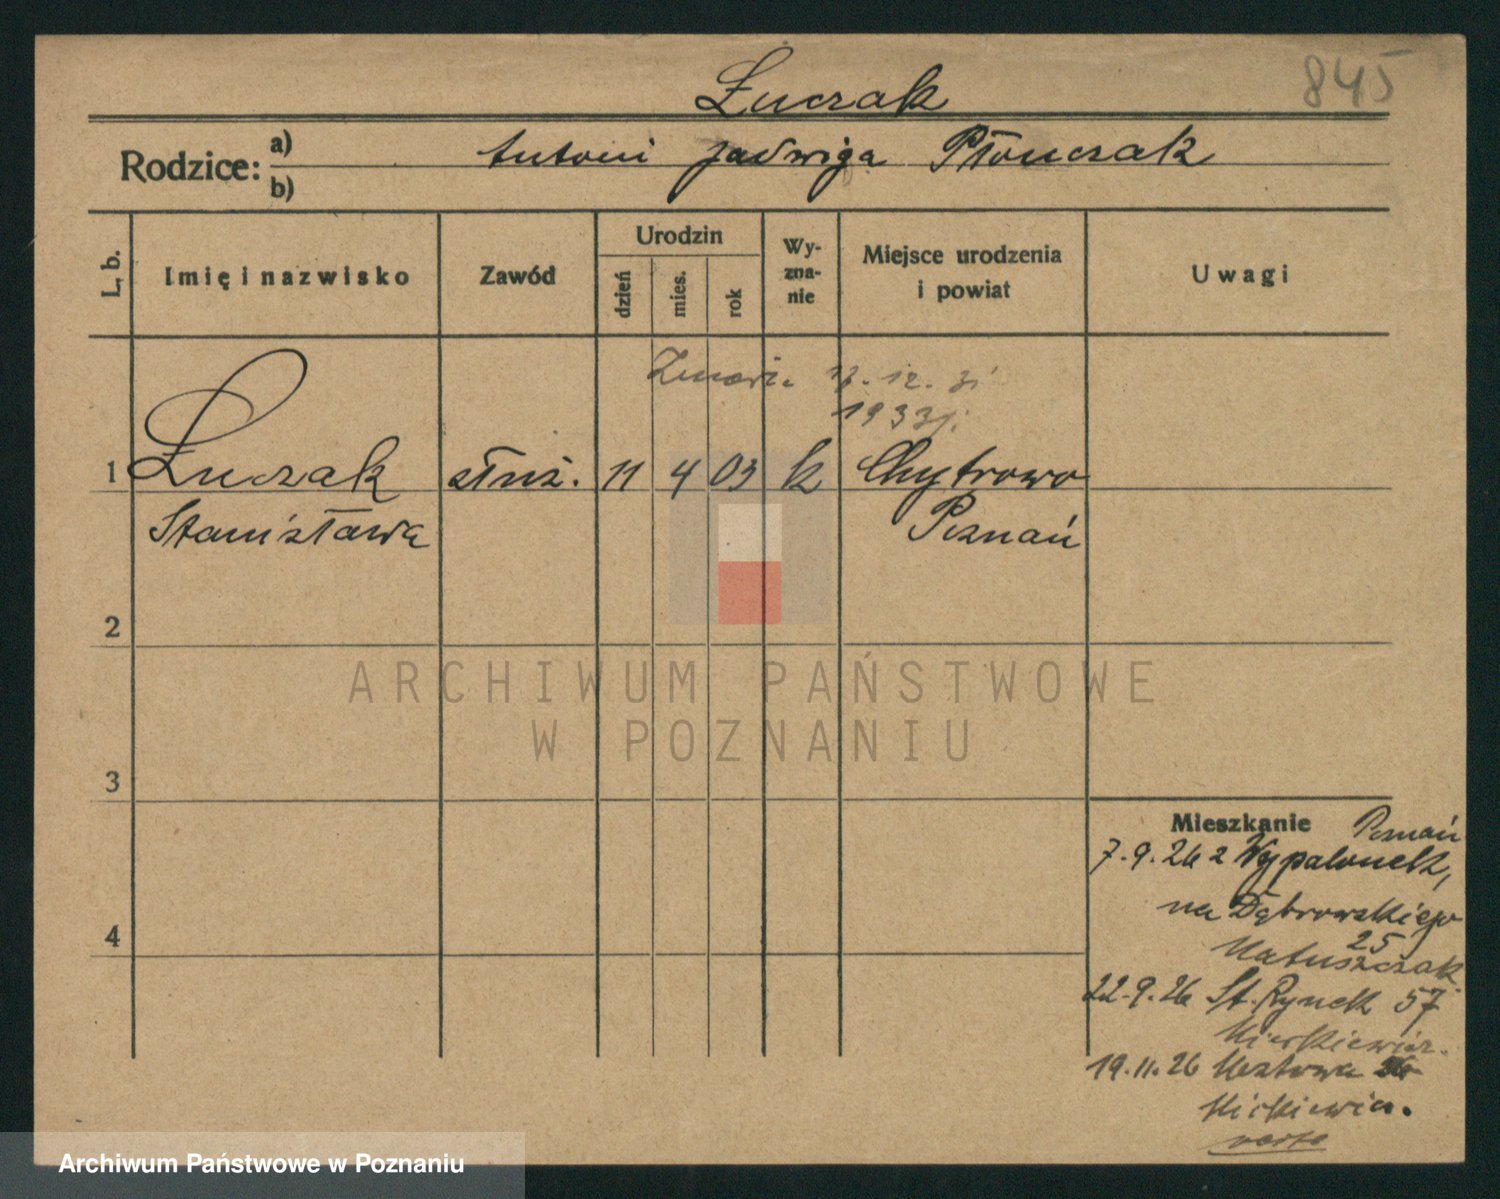 845
Łuczak
Rodzice: a) Antoni Jadwiga Płończak
b)
L. b. Imię i nazwisko Zawód Urodzin dzień mies. rok Wyznanie Miejsce urodzenia i powiat Uwagi
17.12.31
1933 r.
1 Łuczak służ. 11 4 03 k Chytrowo
Stanisława Poznań
2
3
4
Mieszkanie Poznań
7.9.26 z Wypalonek,
na Dąbrowskiego
25
Matuszczak
22.9.26 St. Rynek 57
19.11.26
verte
ARCHIWUM PAŃSTWOWE
W POZNANIU
Archiwum Państwowe w Poznaniu